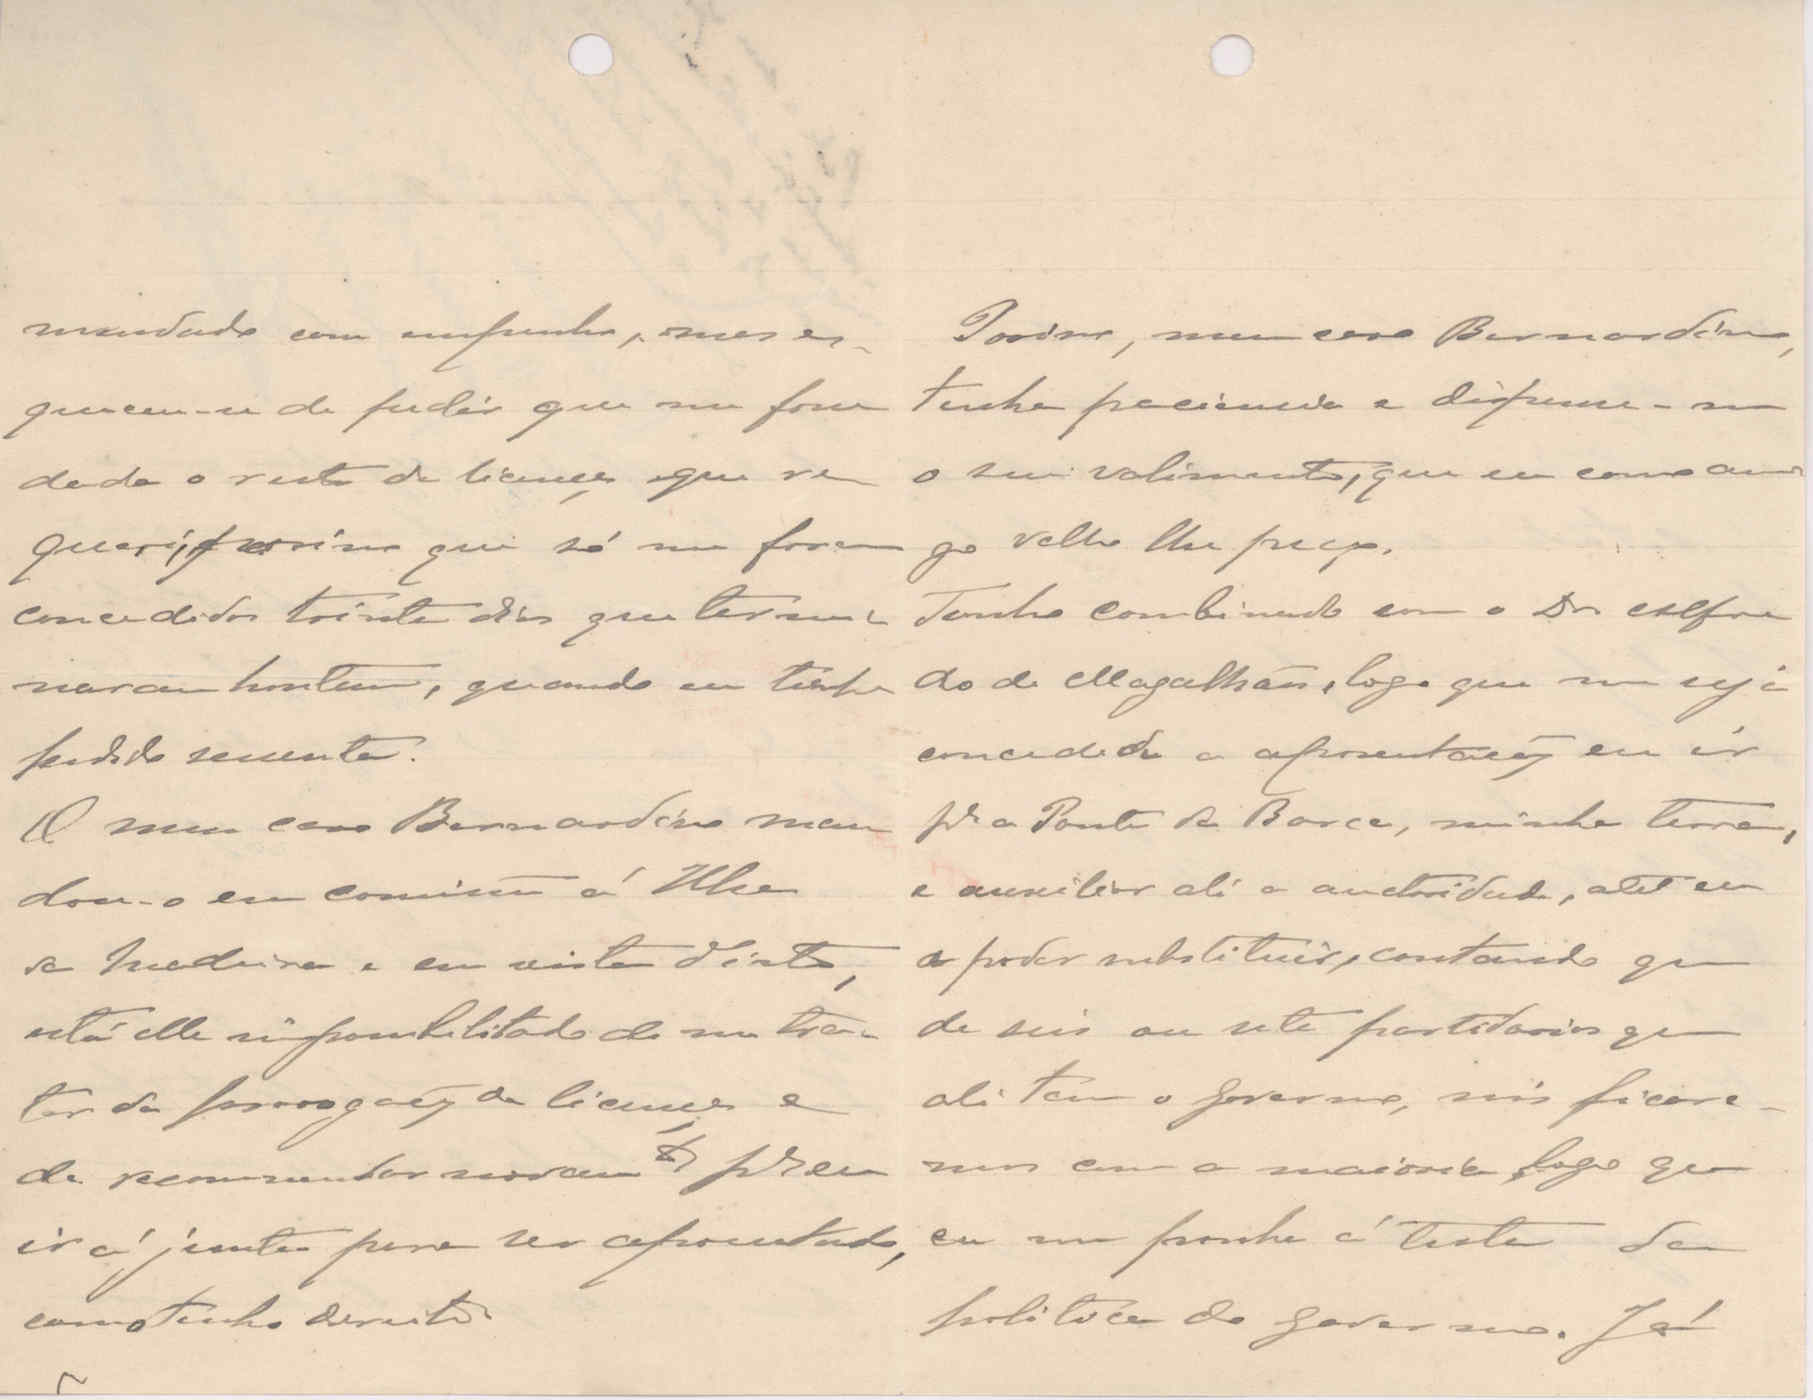 mandado com empenho, mas es-
queceu-se de pedir que me fosse
dado o resto da licença que re
queri, porisso que só me foram
concedidos trinta dias que termi-
naram hontem, quando eu tinha
pedido sessenta.
O meu caro Bernardino man
dou-o em comissão á Ilha
da Madeira e em vista d'isto,
está elle impossibilitado de me tra-
tar da prorogação da licença e
de recommendar pª eu
ir á junta para ser aposentado,
como tenho direito.
Porisso, meu caro Bernardino,
tenha paciencia e dispense-me
o seu valimento, que eu como ami
go velho lhe peço.
Tenho combinado com o Dr Alfre
do de Magalhães, logo que me seja
concedida a aposentação eu ir
pª a Ponte da Barca, minha terra,
e auxiliar ali a auctoridade, até eu
a poder substituir, contando que
de seis ou sete partidarios que
ali tem o governo, nós ficare-
mos com a maioria, logo que
eu me ponha á testa da
politica do governo. Já